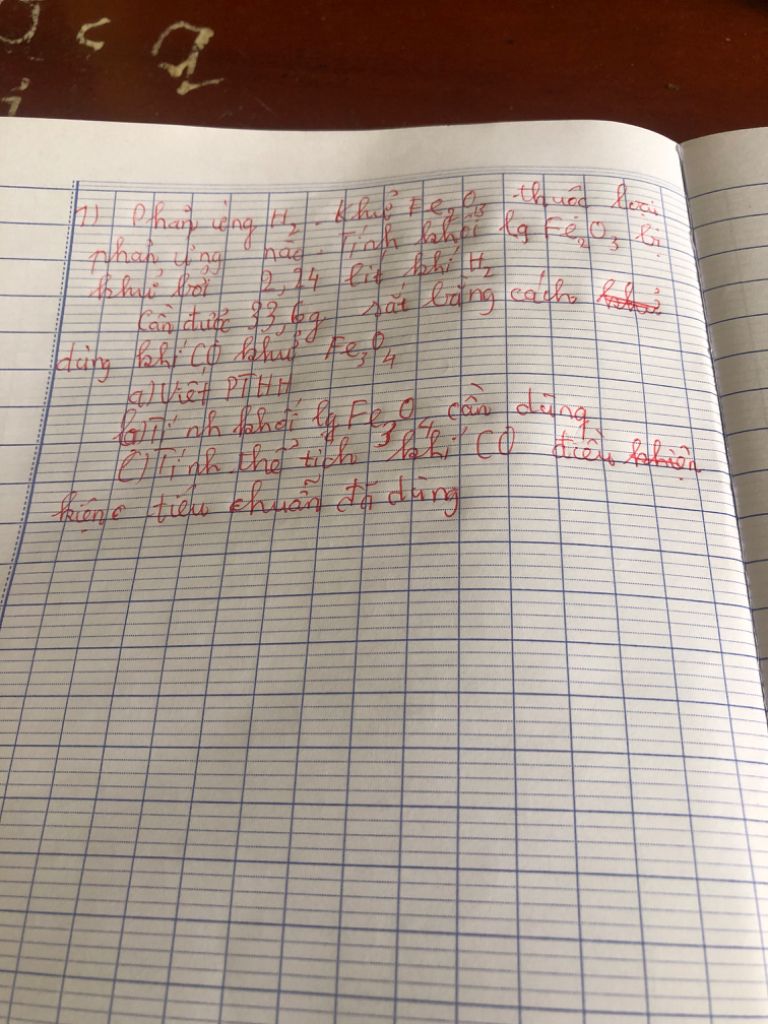 1) Phản ứng H₂ khử Fe₂O₃ thuộc loại
phản ứng nào. Tính khối lg Fe₂O₃ bị
khử bởi 2,24 lít khí H₂
Cần được 33,6g sắt bằng cách
dùng khí CO khử Fe₃O₄
a) Viết PTHH
b) Tính khối lg Fe₃O₄ cần dùng
c) Tính thể tích khí CO điều khiện
kiện tiêu chuẩn đã dùng